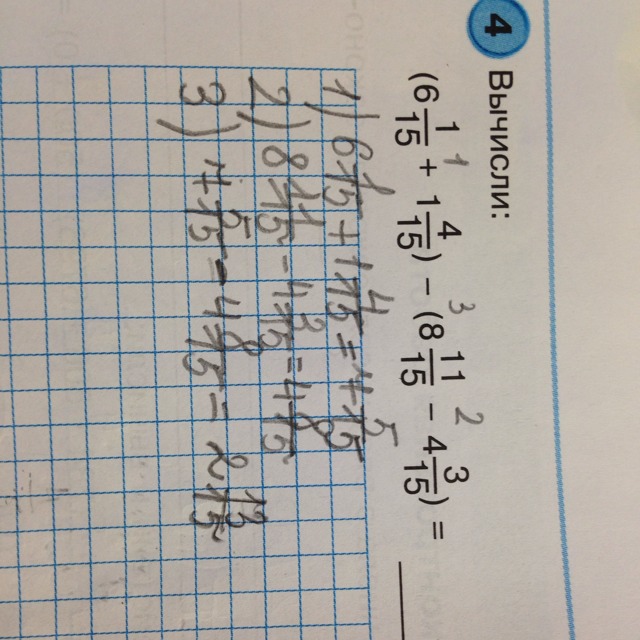 4 Вычисли:
(6 1/15 + 1 4/15) − (8 11/15 − 4 3/15) =
1 3 2
1) 6 1/15 + 1 4/15 = 7 5/15
2) 8 11/15 - 4 3/15 = 4 8/15
3) 7 5/15 - 4 8/15 = 2 13/15